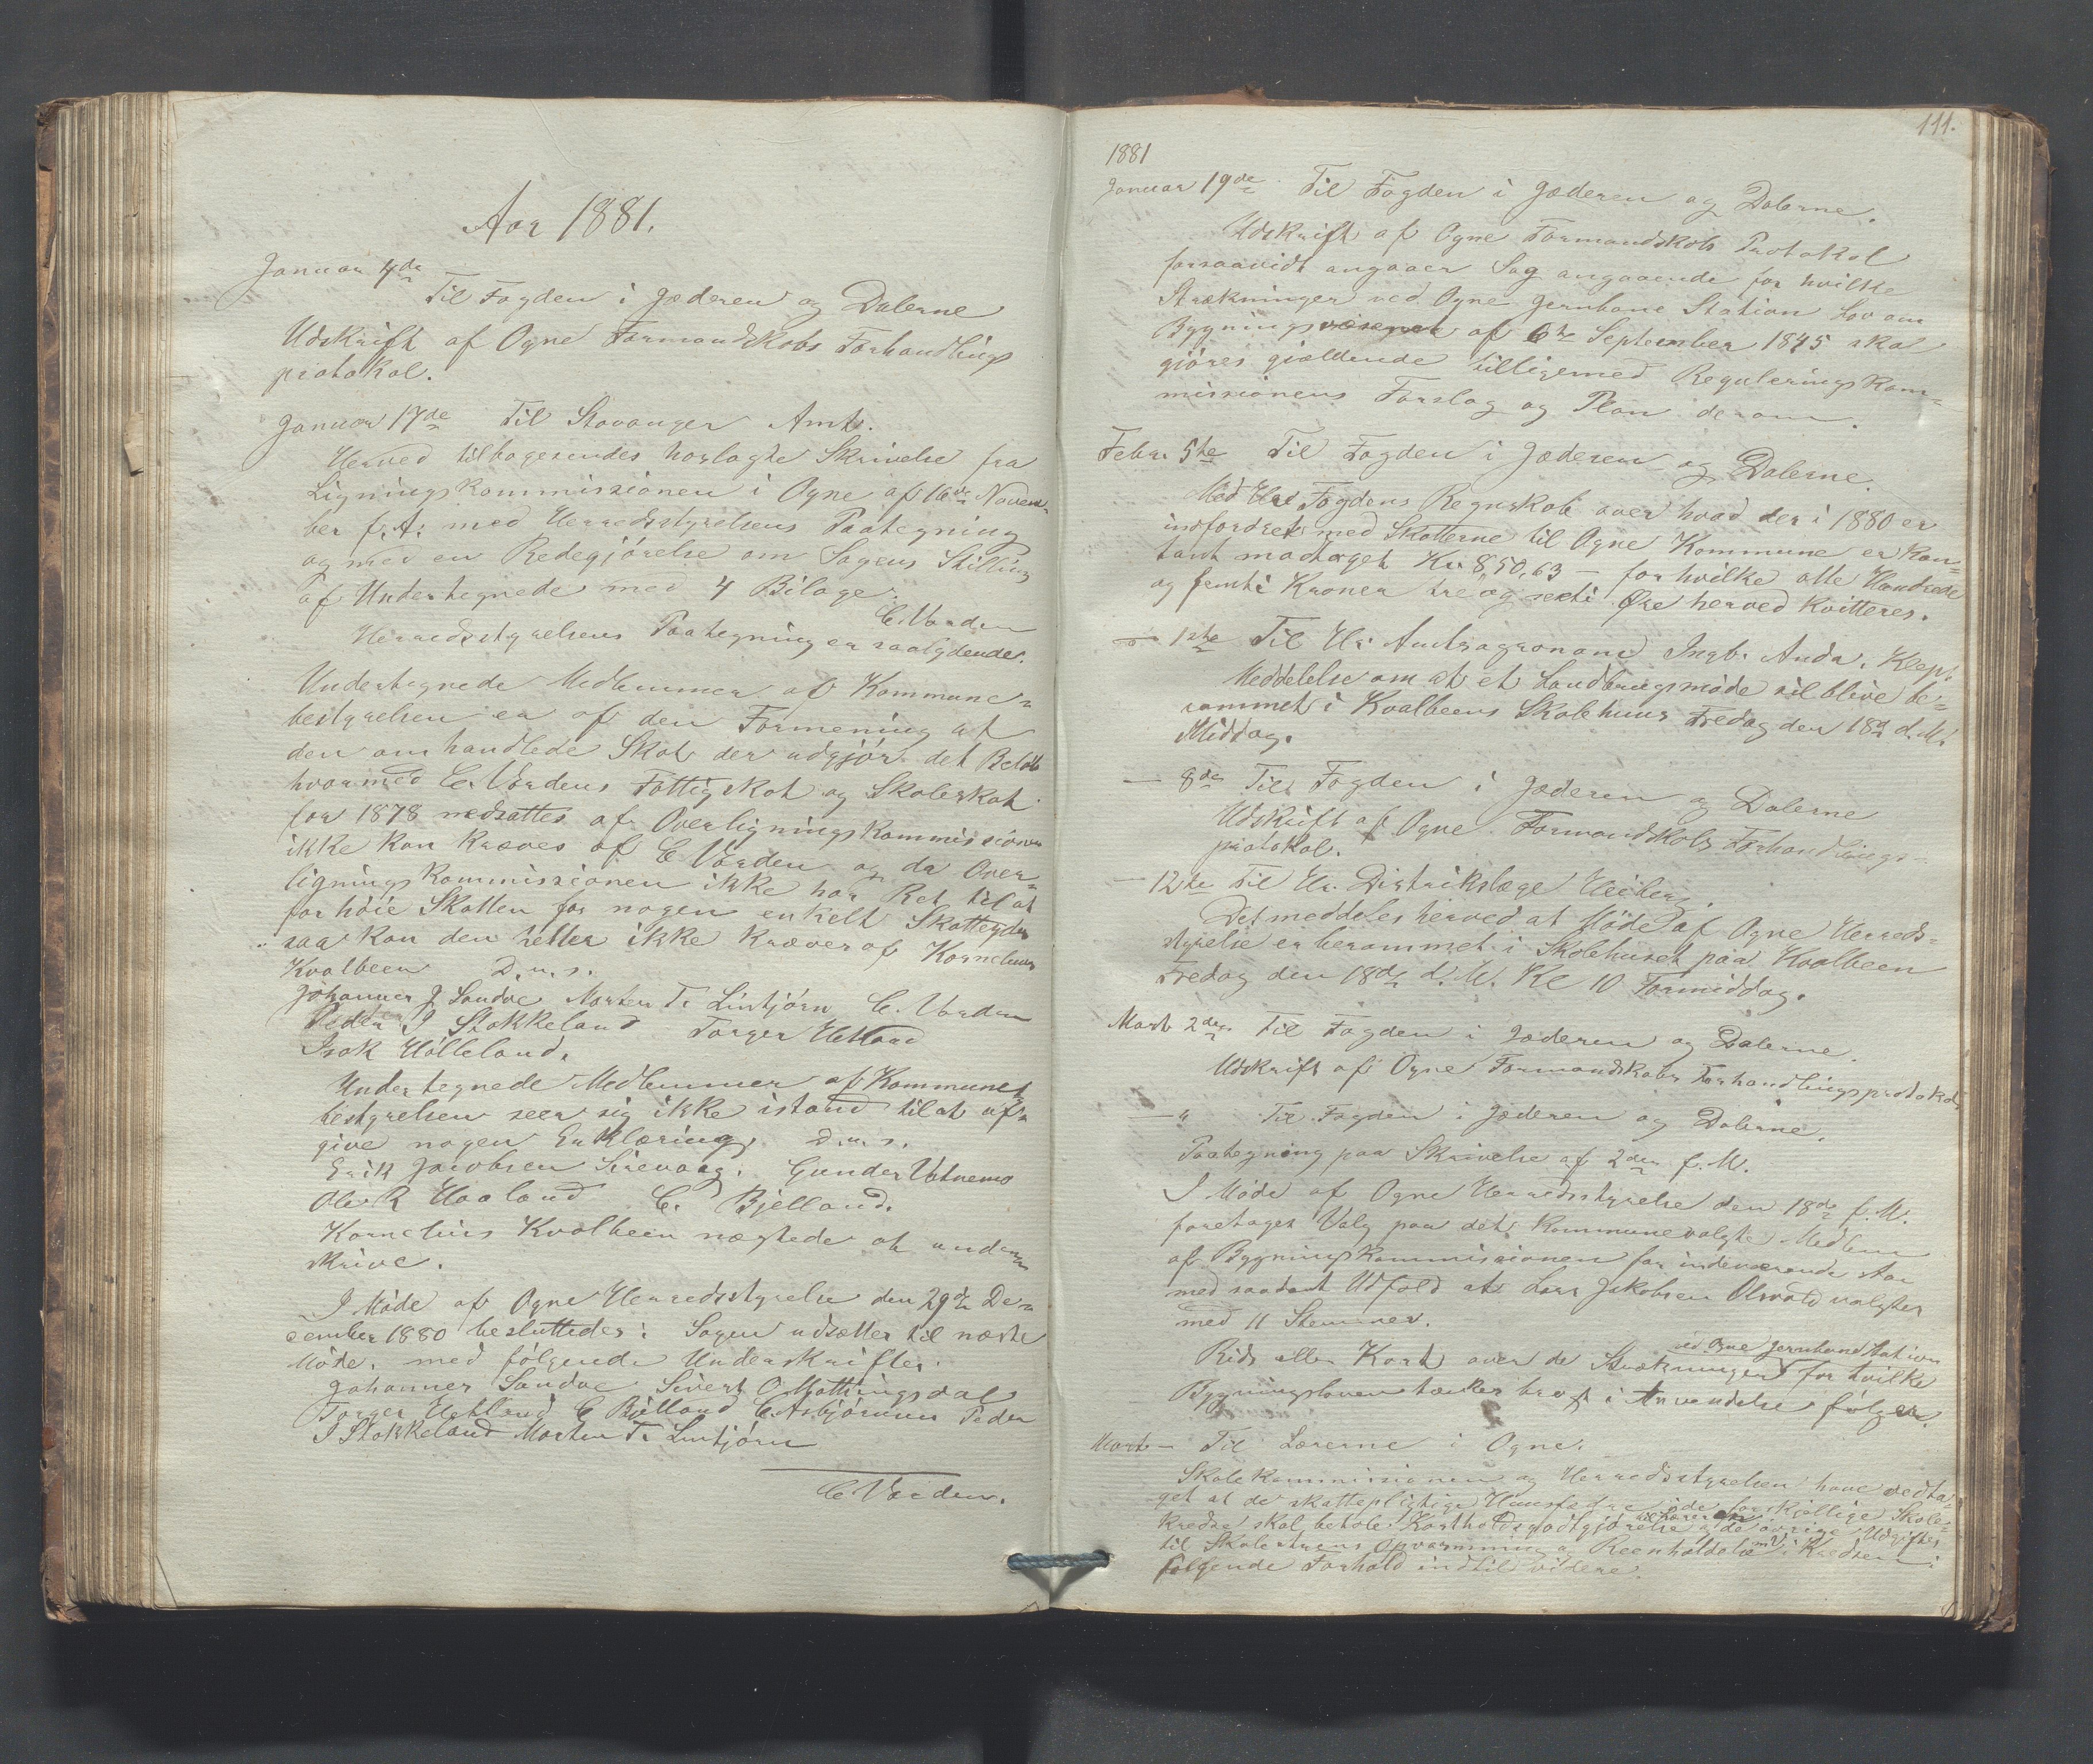 Aar 1881.
Januar 4de
Til Fogden i Jæderen og Dalerne
Udskrift af Ogne Formandskabs Forhandlings
protokol.
Januar 17de Til Stavanger Amt.
Herved tilbagesendes hoslagte Skrivelse fra
Ligningskommissionen i Ogne af 16de Novem-
ber f. A. med Herredsstyrelsens Paategning
og med en Redegjørelse om Sagens Stilling
af Undertegnede med 4 Bilage.
C. Varden
Herredsstyrelsens Paategning er saalydende.
Undertegnede Medlemmer af Kommune-
bestyrelsen er af den Formening at
den omhandlede Skat der udgjør det Beløb
hvormed C. Vardens Fattigskat og Skoleskat
for 1878 nedsattes af Overligningskommissionen
ikke kan kræves af C Varden og da Over-
ligningskommissionen ikke har Ret til at
forhöie Skatten for nogen enkelt Skatteyder
saa kan den heller ikke kræves af Kornelius
Kvalbeen D. u. s.
Johannes J Sandve Morten T. Lintjörn C. Varden
Peder J Stokkeland Torger Hetland
Isak Hölleland.
Undertegnede Medlemmer af Kommune
bestyrelsen seer sig ikke istand til at af-
give nogen Erklæring. D. u. s.
Erik Jacobsen Sirevaag. Gunder Vatnemo
Ole R Haaland C. Bjelland.
Kornelius Kvalbeen nægtede at under
skrive.
I Möde af Ogne Herredsstyrelse den 29de De-
cember 1880 besluttedes: Sagen udsættes til næste
Möde. med fölgende Underskrifter.
Johannes Sandve Sivert O Mattingsdal
Torger Hetland C Bjelland C. Asbjörnsen Peder
J Stokkeland Morten T. Lintjörn
C Varden.
111.
1881
Januar 19de Til Fogden i Jæderen og Dalerne.
Udskrift af Ogne Formandskabs Protokol
forsaavidt angaaer Sag angaaende for hvilke
Strækninger ved Ogne Jernbane Station Lov om
Bygningsvæsenet af 6te September 1845 skal
gjöres gjældende tilligemed Reguleringskom-
missionens Forslag og Plan derom.
Febr. 5te Til Fogden i Jæderen og Dalerne.
Med Hr Fogdens Regnskab over hvad der i 1880 er
indfordret med Skatterne til Ogne Kommune er kon-
tant modtaget Kr. 850,63 – for hvilke otte Hundrede
og femti Kroner tre og sexti Øre herved kvitteres.
— 1ste Til Hr. Amtsagronom Ingb. Anda. Klep.
Meddelelse om at et Landbrugsmöde vil blive be-
rammet i Kvalbeens Skolehuus Fredag den 18de d. M.
Middag.
— 8de Til Fogden i Jæderen og Dalerne
Udskrift af Ogne Formandskabs Forhandlings-
protokol.
— 12te Til Hr. Distriktslæge Heiberg.
Det meddeles herved at Möde af Ogne Herreds-
styrelse er berammet i Skolehuset paa Kvalbeen
Fredag den 18de d. M. Kl 10 Formiddag.
Marts 2den Til Fogden i Jæderen og Dalerne.
Udskrift af Ogne Formandskabs Forhandlingsprotokol
— " Til Fogden i Jæderen og Dalerne.
Paategning paa Skrivelse af 2den f. M.
I Möde af Ogne Herredsstyrelse den 18de f. M.
foretoges Valg paa det kommunevalgte Medlem
af Bygningskommissionen for indeværende Aar
med saadant Udfald at Lars Jakobsen Ølsvold valgtes
med 11 Stemmer.
ved Ogne Jernbanestation
Rids eller Kort over de Strækninger for hvilke
Bygningsloven tænkes bragt i Anvendelse fölger.
Marts — Til Lærerne i Ogne.
Skolekommissionen og Herredsstyrelsen have vedta-
get at de skattepligtige Huusfædre i de forskjellige Skole-
kredse skal betale Kostholdsgodtgjörelse til Læreren og de övrige Udgifter
til Skolestuens Opvarmning og Reenholdelse m. V. i Kredsen i
fölgende Forhold indtil videre.